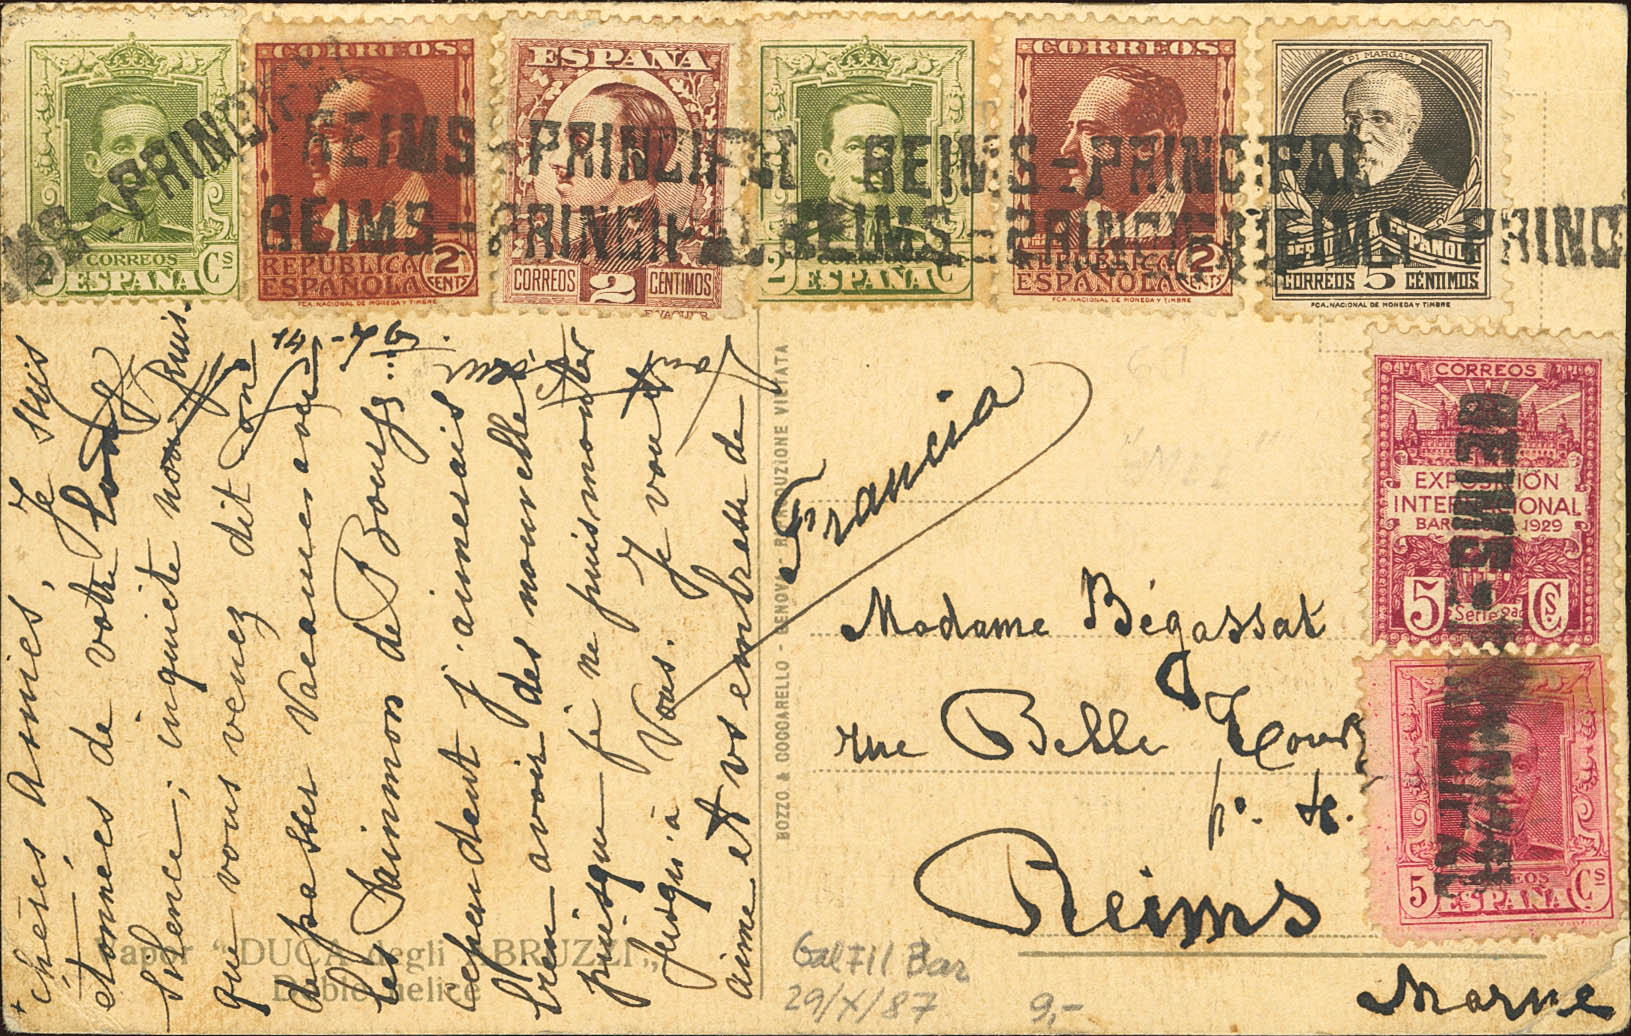 2 CORREOS Cs
ESPAÑA
CORREOS
REPUBLICA 2
ESPAÑOLA CENTS
FCA.NACIONAL DE MONEDA Y TIMBRE
ESPAÑA
CORREOS 2 CENTIMOS
2 Cs
ESPAÑA
CORREOS
REPUBLICA 2
ESPAÑOLA CENTS
FCA.NACIONAL DE MONEDA Y TIMBRE
PI MARGALL
REPUBLICA ESPAÑOLA
CORREOS 5 CENTIMOS
FCA.NACIONAL DE MONEDA Y TIMBRE
REIMS-PRINCIPAL
REIMS-PRINCIPAL
REIMS-PRINCIPAL
REIMS-PRINCIPAL
CORREOS
EXPOSICIÓN
INTERNACIONAL
BARCELONA 1929
5 Cs
Serie 2a
CORREOS
5 ESPAÑA Cs
14-7-
chères Amies, Je suis
étonnées de votre long
silence; inquiète non
que vous venez dit on
de passer Vacances avec
les Sainmon de Bouy
cependant j'aimerais
bien avoir des nouvelles
puisque je ne puis monter
jusqu'à Vous. Je vous
aime et vs embrasse de
Vapor "DUCA degli ABRUZZI"
Doble helice
BOZZO & COCCARELLO - GENOVA - RIPRODUZIONE VIETATA
Francia
Madame Bégassat
rue Belle Tour
Reims
Marne
29/X/87 9,-